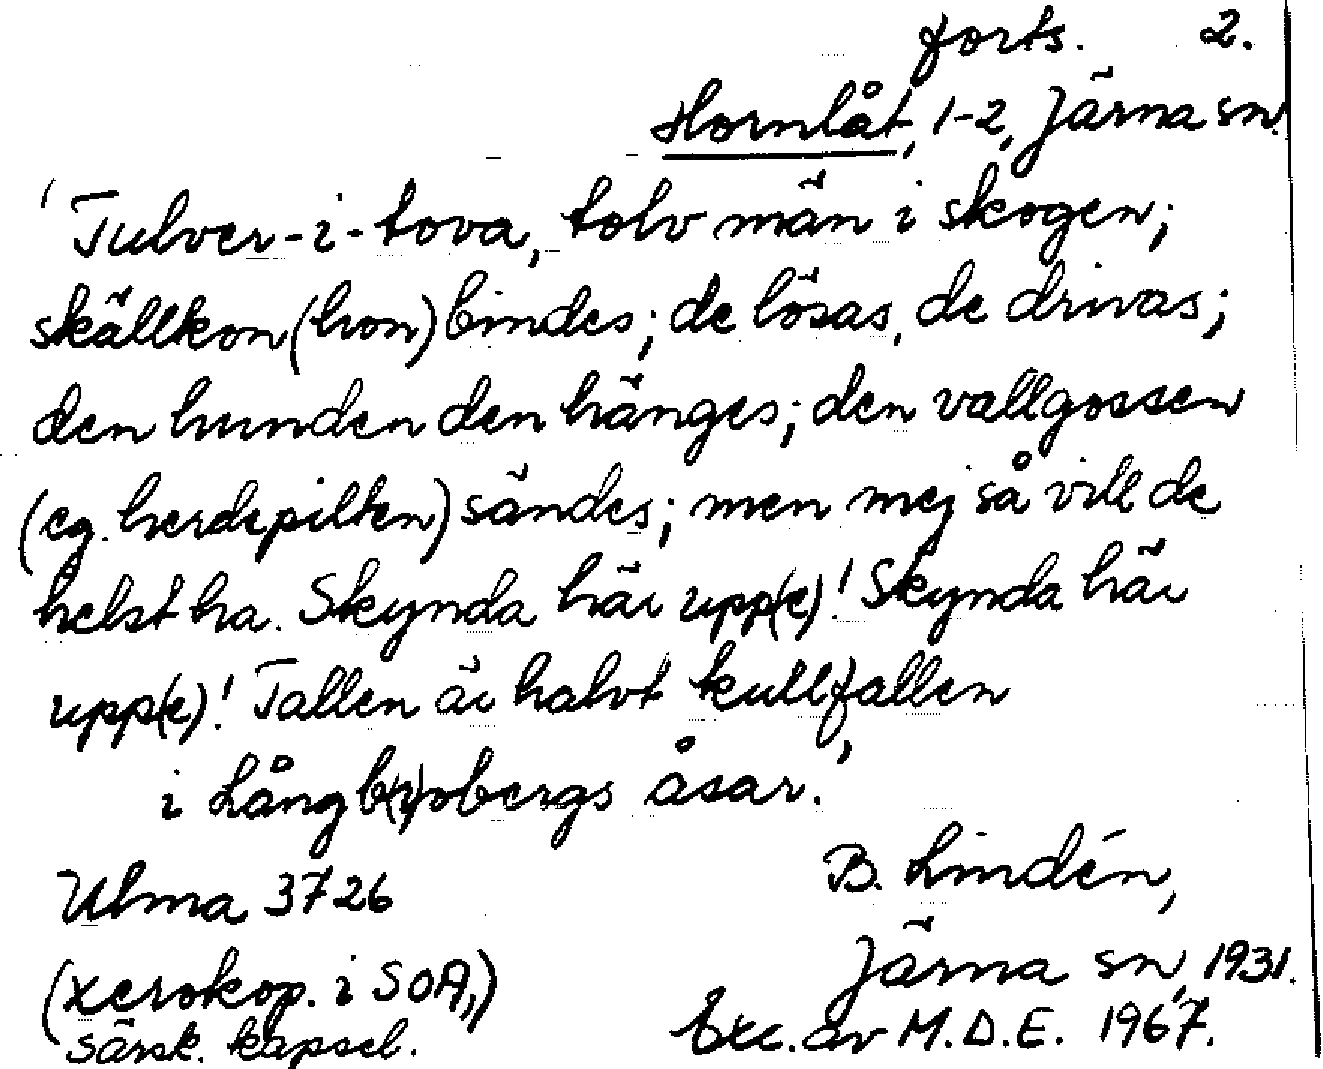 forts. 2.
Hornlåt, 1-2, Järna sn.
'Tulver-i-tova, tolv män i skogen;
skällkon (hon) bindes; de lösas, de drivas;
den hunden den hänges; den vallgossen
(eg. herdepilten) sändes; men mej så vill de
helst ha. Skynda här upp(e)! Skynda här
upp(e)! Tallen är halvt kullfallen
i Långb(r)obergs åsar.'
B. Lindén,
Ulma 3726
Järna sn, 1931.
(xerokop. i SOA,)
särsk. kapsel.
Exc. av M.D.E. 1967.